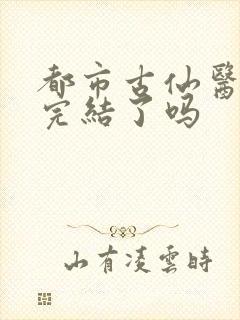 都市古仙醫
完結了吗
山有凌雲時